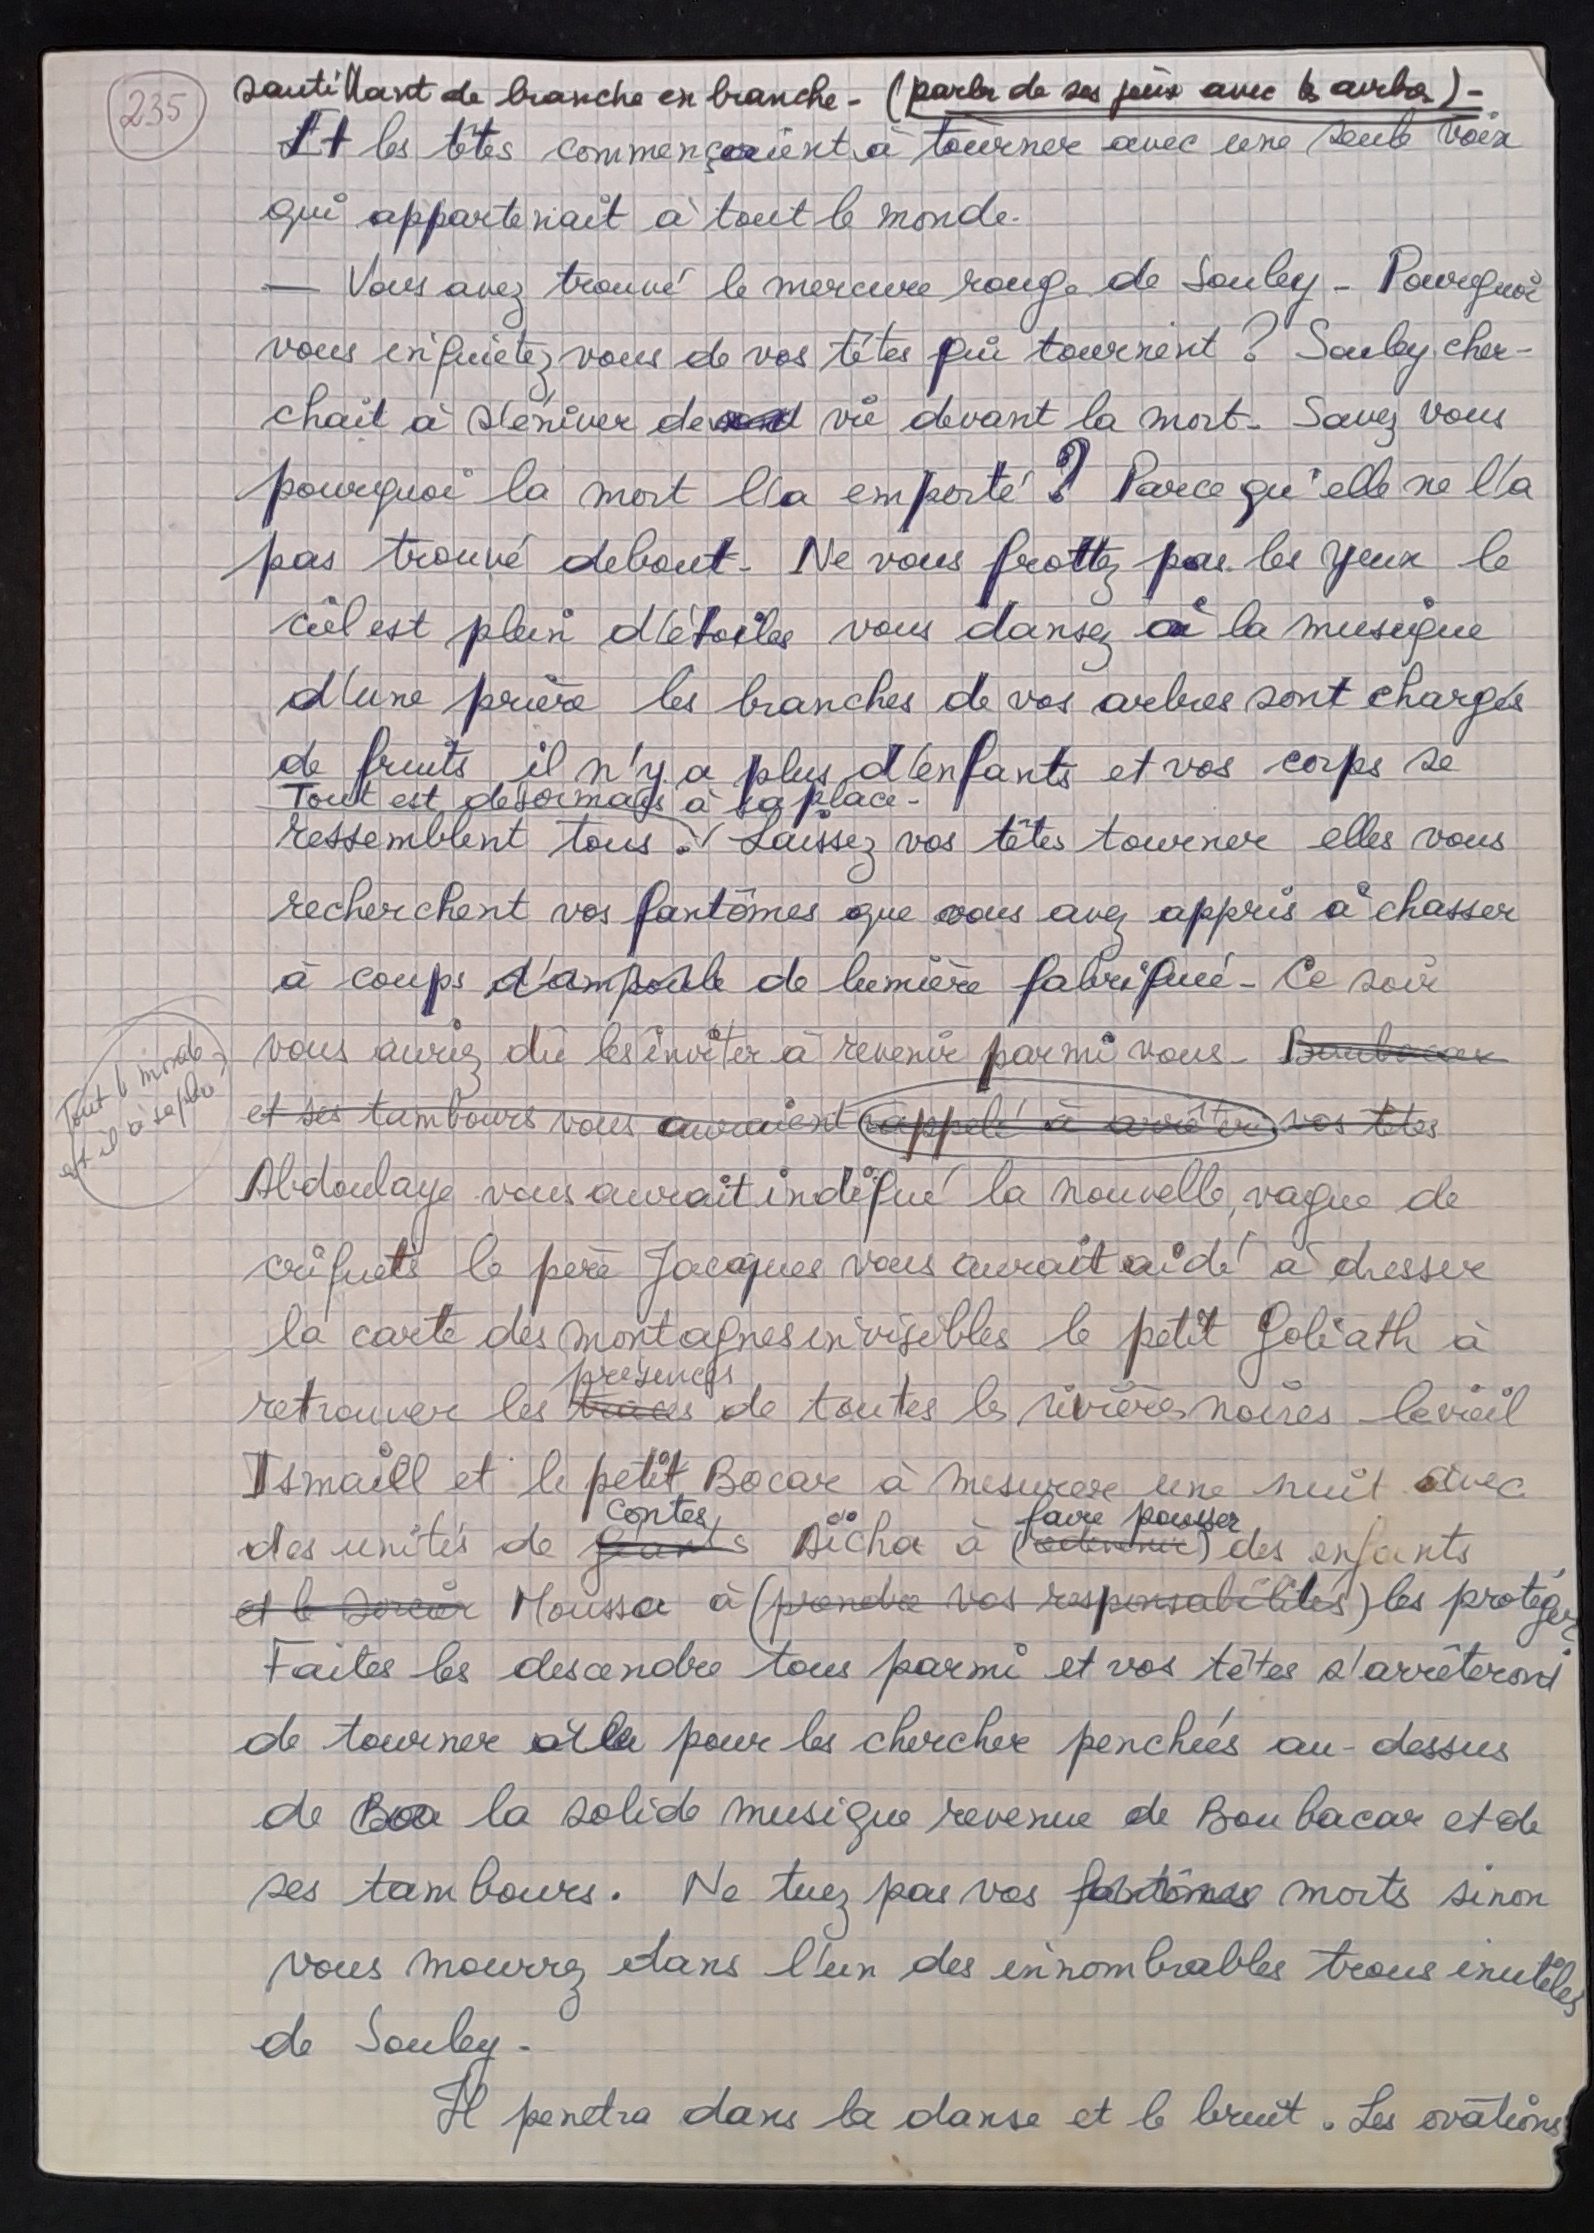 235
sautillant de branche en branche - (parler de ses jeux avec les arbres) -
Et les têtes commençaient à tourner avec une seule voix
qui appartenait à tout le monde.
— Vous avez trouvé le mercure rouge de Souley - Pourquoi
vous inquiétez vous de vos têtes qui tournent ? Souley cher-
chait à s'éniver de vie devant la mort - Savez vous
pourquoi la mort l'a emporté ? Parce qu'elle ne l'a
pas trouvé debout - Ne vous frottez pas les yeux le
ciel est plein d'étoiles vous dansez à la musique
d'une prière les branches de vos arbres sont chargés
de fruits il n'y a plus d'enfants et vos corps se
Tout est désormais à sa place -
ressemblent tous . Laissez vos têtes tourner elles vous
recherchent vos fantômes que vous avez appris à chasser
à coups d'ampoule de lumière fabriqué - Ce soir
vous auriez dû les inviter à revenir parmi vous - Boubacar
et ses tambours vous auraient rappelé à arrêter vos têtes
Tout le monde
est il à sa place ?
Abdoulaye vous aurait indiqué la nouvelle vague de
criquets le père Jacques vous aurait aidé à dresser
la carte des montagnes invisibles le petit Goliath à
présences
retrouver les traces de toutes les rivières noires le vieil
Ismaïll et le petit Bocar à mesurer une nuit avec
contes faire pousser
des unités de Aïcha à ( ) des enfants
et le sorcier Moussa à (prendre vos responsabilités) les protéger
Faites les descendre tous parmi et vos têtes s'arrêteront
de tourner pour les chercher penchées au-dessus
de la solide musique revenue de Boubacar et de
ses tambours . Ne tuez pas vos fantômes morts sinon
vous mourrez dans l'un des innombrables trous inutiles
de Souley -
Il penetra dans la danse et le bruit . Les ovations